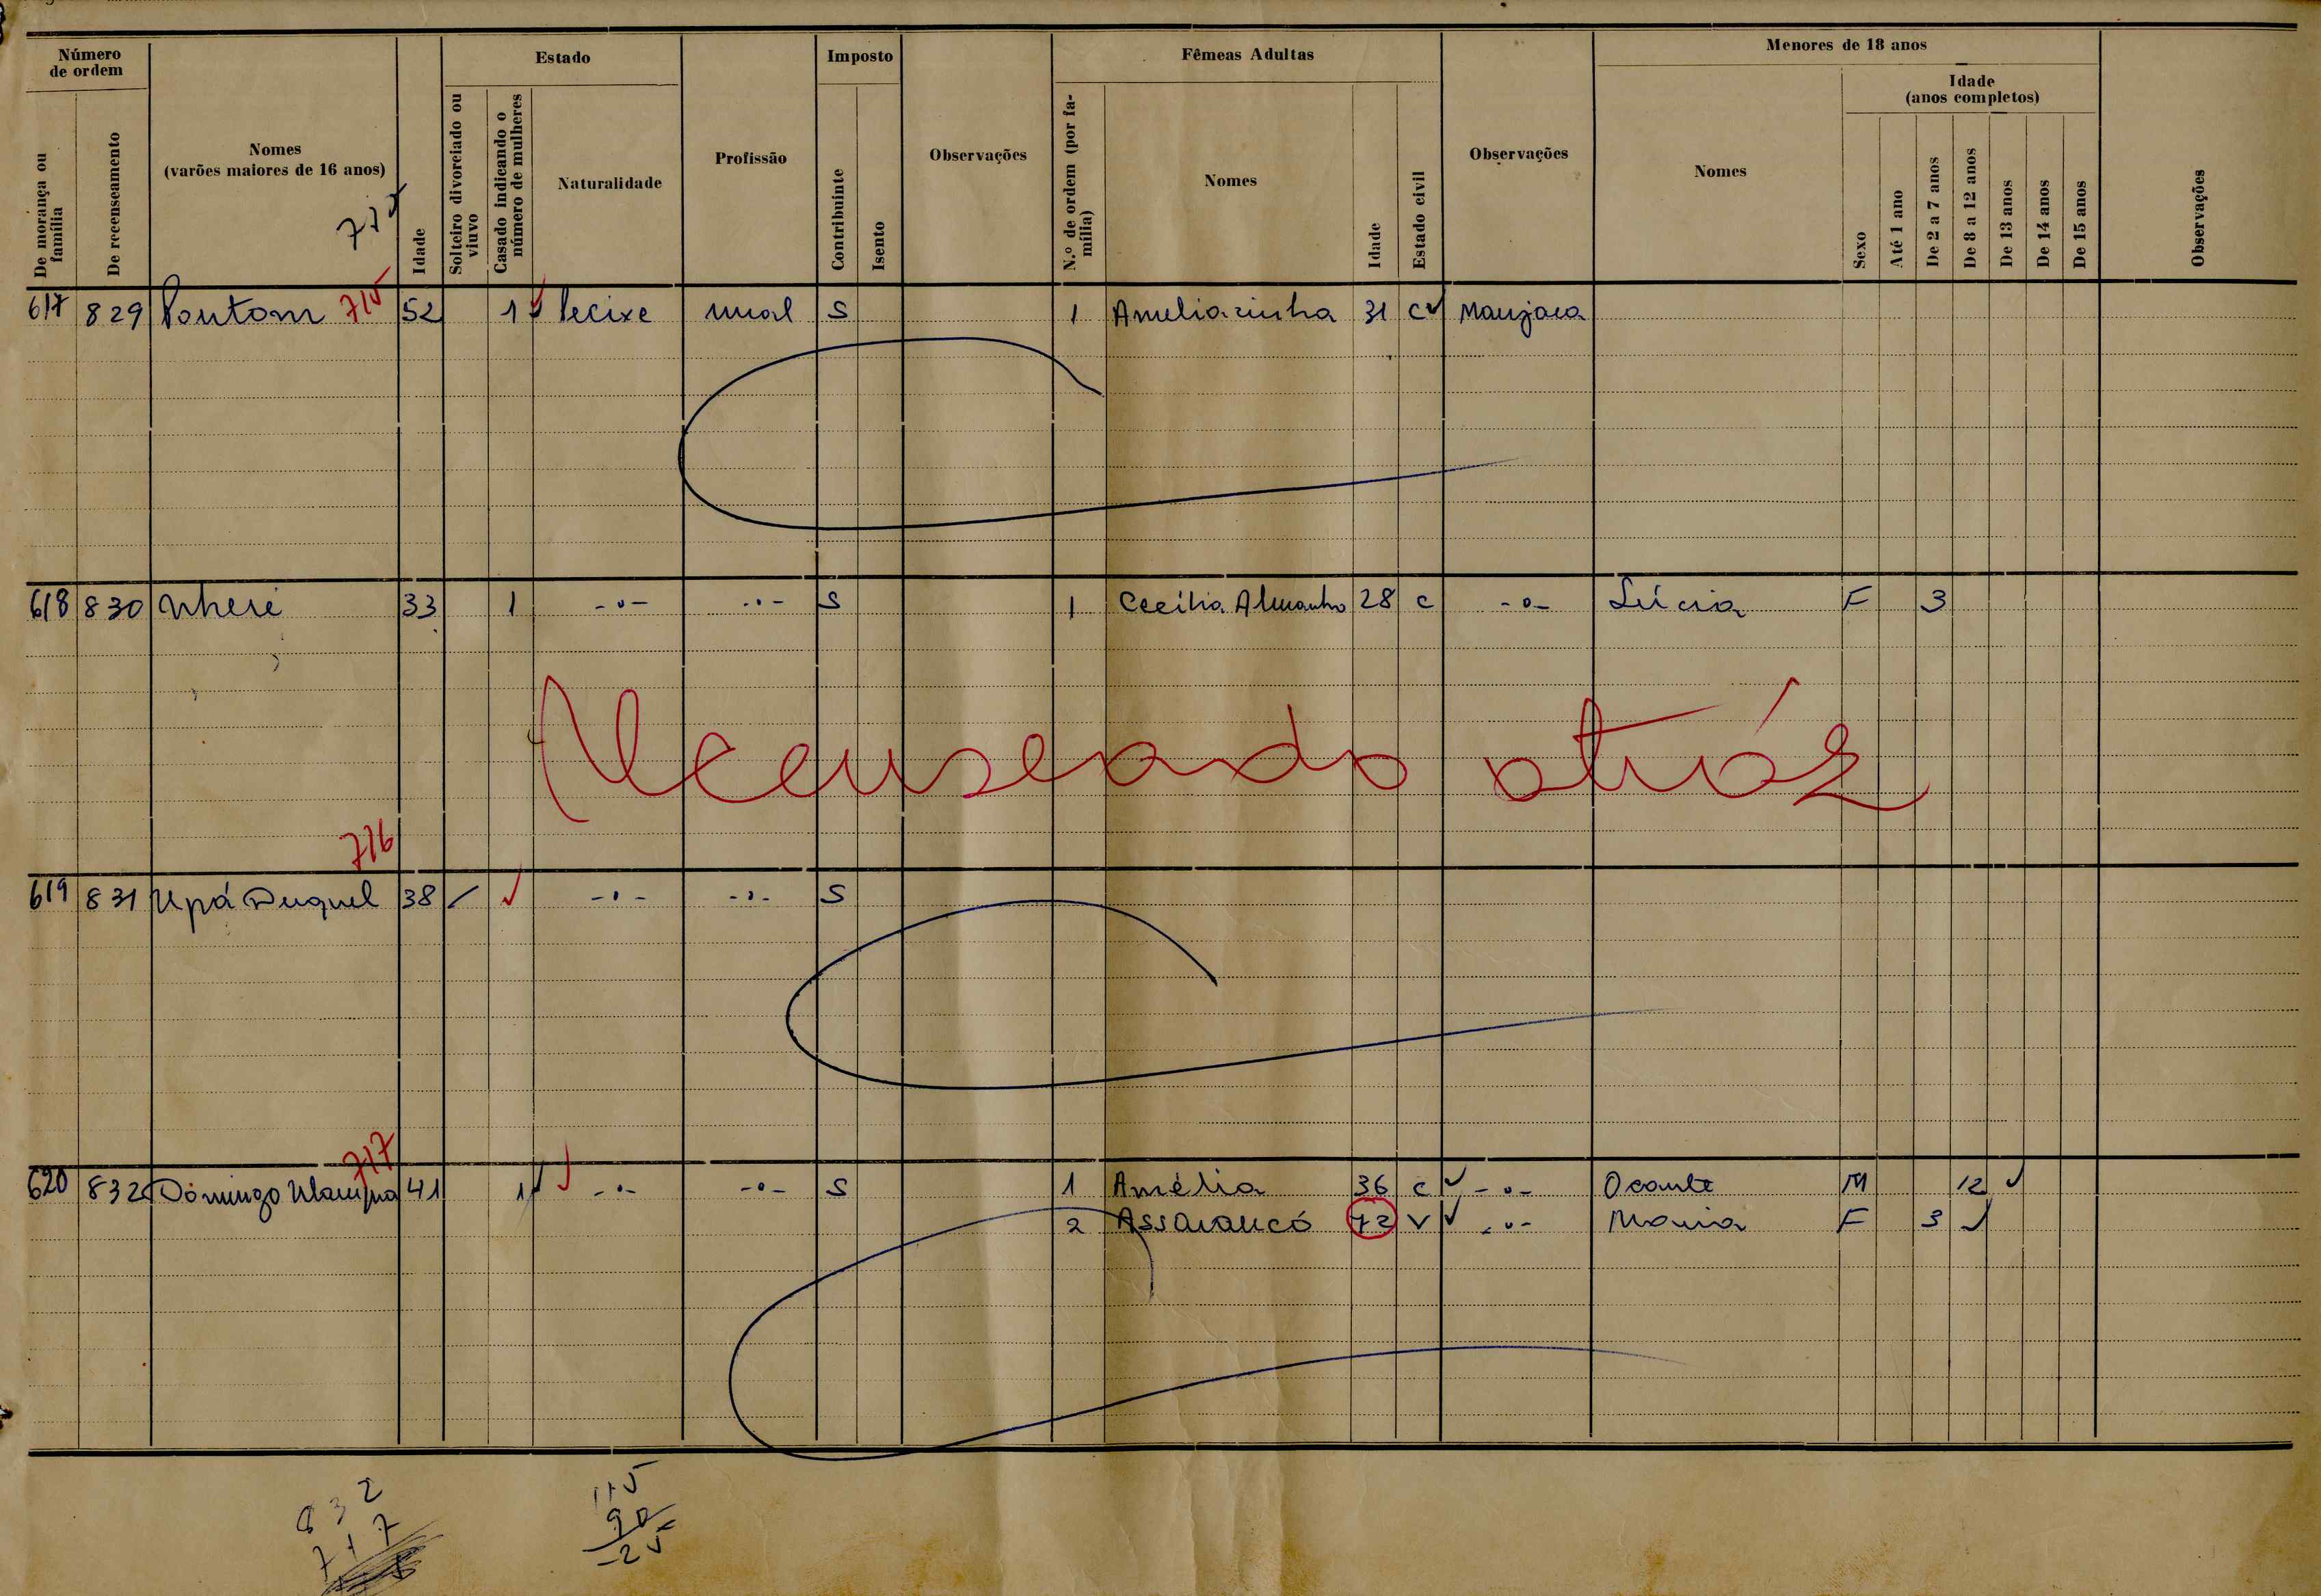 Número de ordem
Estado
Imposto
Fêmeas Adultas
Menores de 18 anos
Idade (anos completos)
De morança ou família
De recenseamento
Nomes
(varões maiores de 16 anos)
715
Idade
Solteiro divorciado ou viuvo
Casado indicando o número de mulheres
Naturalidade
Profissão
Contribuinte
Isento
Observações
N.º de ordem (por família)
Nomes
Idade
Estado civil
Observações
Nomes
Sexo
Até 1 ano
De 2 a 7 anos
De 8 a 12 anos
De 13 anos
De 14 anos
De 15 anos
Observações
617 829 715 52 1 Pecixe rural S 1 Ameliazinha 31 C Manjaca
618 830 Nheré 33 1 -o- -o- S 1 Cecília 28 C -o- Lúcia F 3
Recenseado atráz
716
619 831 Upá Duquel 38 -o- -o- S
717
620 832 Domingo 41 1 -o- -o- S 1 Amélia 36 C -o- Ocante M 12
2 Assarancó 72 V -o- Maria F 3
832
717
115
90
25